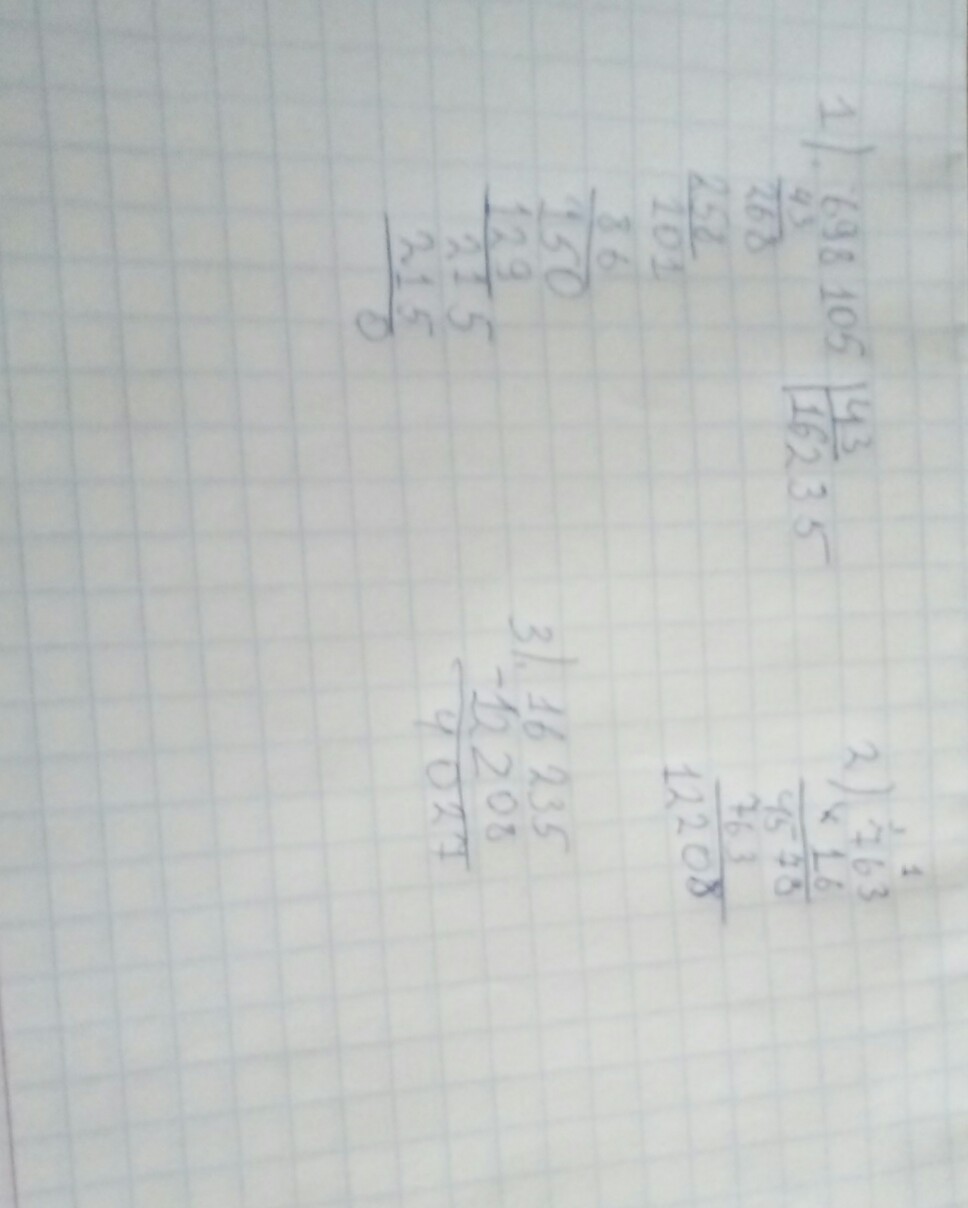 1). 698 105 | 43
43 | 16235
268
258
101
86
150
129
215
215
0
2) 763
× 16
4578
763
12208
3). 16 235
- 12 208
4 027